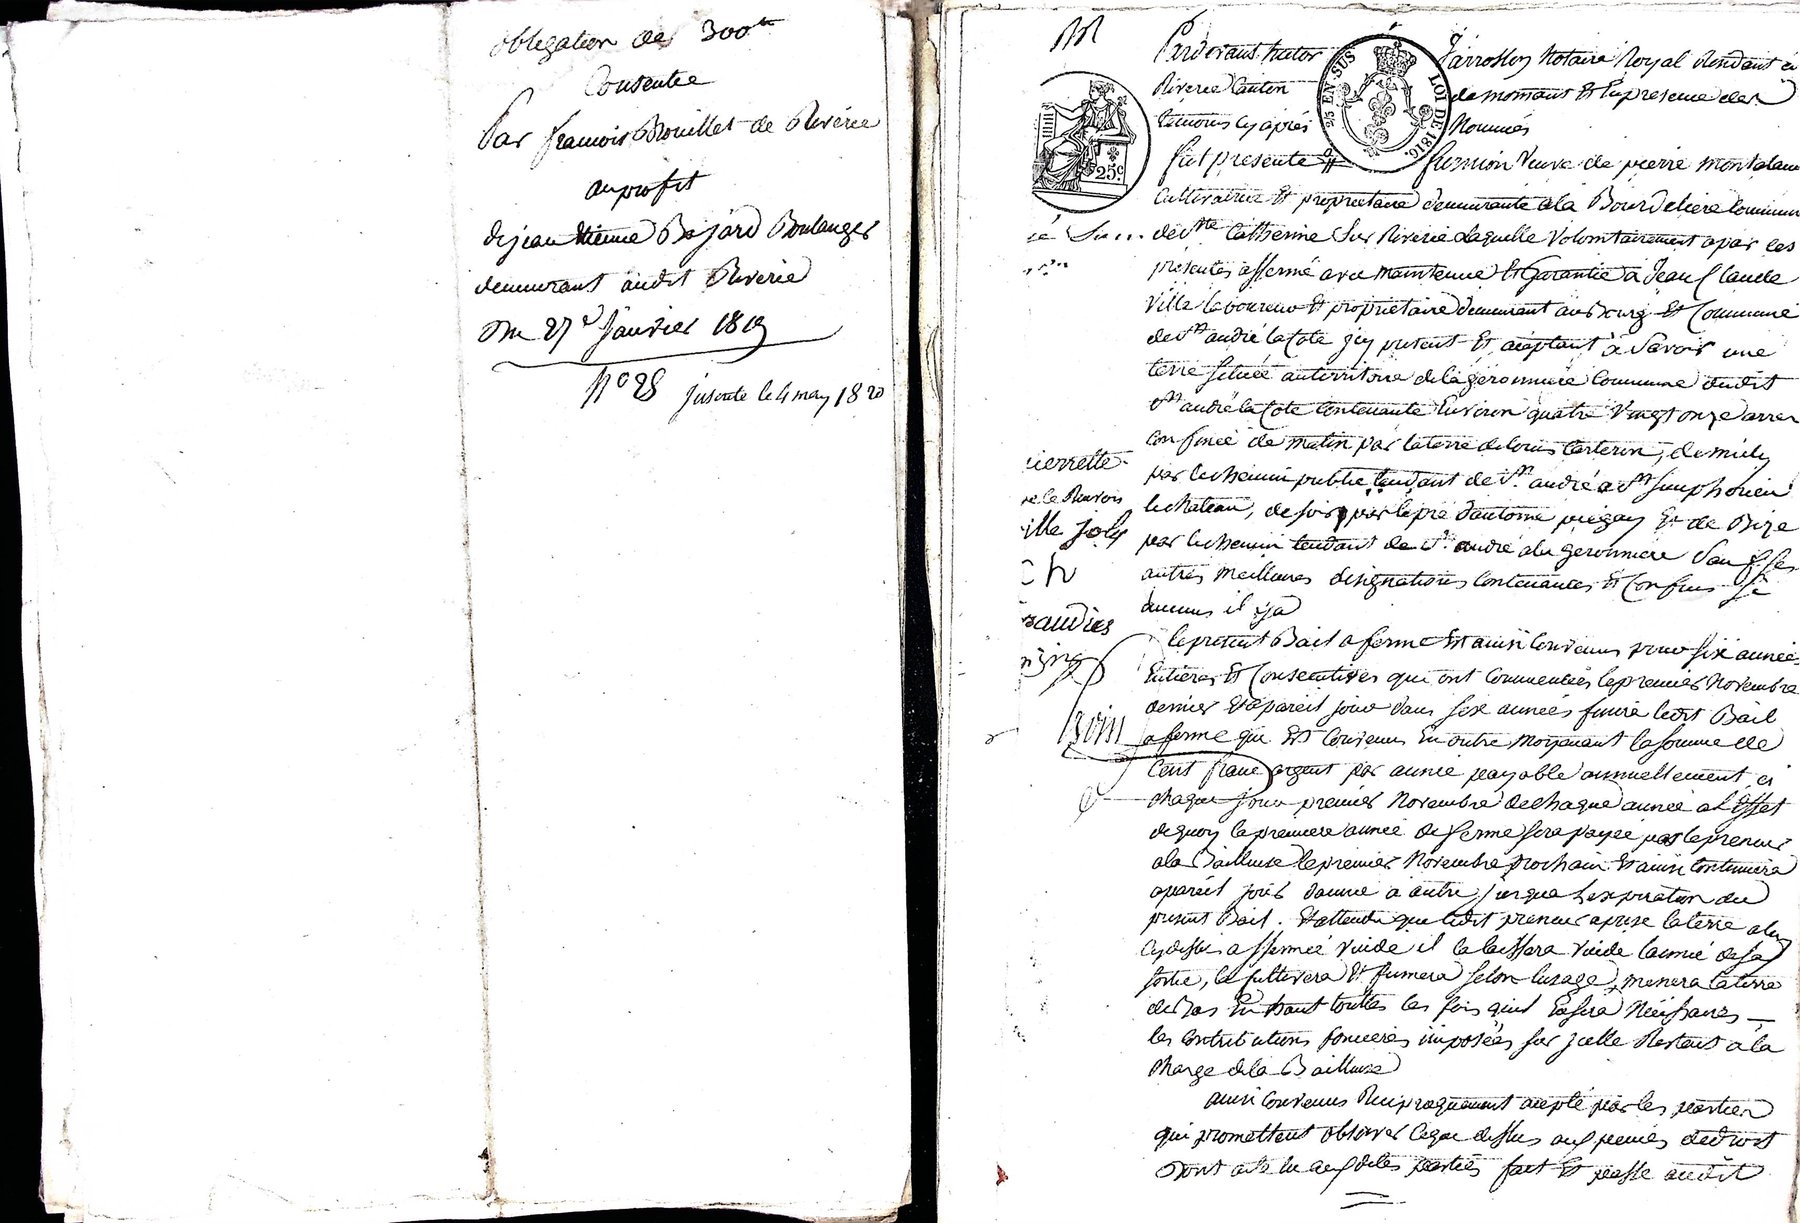 obligation de 300#
Consentie
Par francois Brouillet de Riverie
au profit
de jean Etienne Bajard Boulanger
demeurant audit Riverie
Du 27e Janvier 1819
No 28 juscute le 4 may 1820
Pardevant victor Jarrosson Notaire Royal Residant à
Riverie Canton de mornant Et En presence des
témoins cy après Nommés
fut presente fusmion Veuve de pierre
Cultivatrice Et proprietaire demeurante ala Bourdeliere Commune
de Ste Catherine Sur Riverie Laquelle Volontairement a par ces
presentes affermé avec maintenue Et Garantie à Jean Claude
Ville laboureur Et proprietaire demeurant au Bourg Et Commune
de St andré la Cote jcy present Et aceptant à Savoir une
terre Située au territoire de la géronniere Commune dudit
St andré la Cote Contenante Environ quatre Vingt onze arres
Confinée de matin par la terre de louis Carteron, de midy
par le chemin public tendant de St andré a St simphorien
le chateau, de soir par le pré d'antoine piégay Et de Bize
par le chemin tendant de St andré ala geronniere Sauf ses
autres meilleures désignations Contenances Et Confins Si
aucuns il y a
le present Bail a ferme Est ainsi Convenus pour six années
Entieres Et Consecutives qui ont Commencées le premier Novembre
dernier Et a pareil jour dans six années finira ledit Bail
a ferme qui Est Convenus En outre Moyenant la somme de
Cent franc argent par année payable annuellement à
chaque jour premier Novembre de chaque année a l'Effet
de quoy la premiere année de ferme sera payée par le preneur
ala Bailleuse le premier Novembre prochain Et ainsi Continuera
a pareil jour d'année à autre jusqua L'expiration du
present Bail. Et attendu que ledit preneur a prise la terre a luy
Cy dessus affermée vuide il la laissera vuide l'année de sa
sortie, la Cultivera Et fumera selon lusage, menera la terre
du bas En haut toutes les fois quil En sera Néessaires —
les Contributions foncieres imposées sur jcelle Restant à la
charge de la Bailleuse
ainsi Convenus Reciproquement acepté par les parties
qui promettent observer ce que dessus aux peines de droit
Dont acte lu auxdites parties fait Et passé audit
ierrette
ille joly
audier
25c
25 EN SUS
LOI DE 1816.